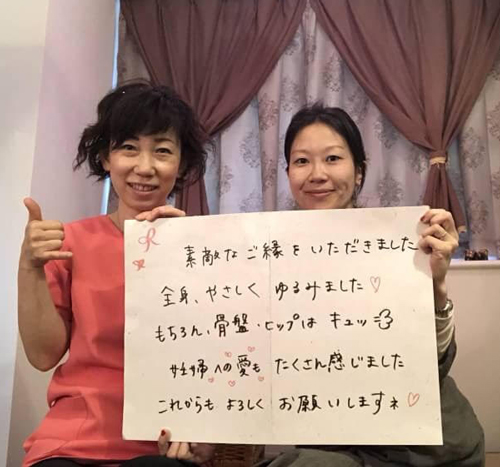 素敵なご縁をいただきました
全身、やさしく ゆるみました♡
もちろん、骨盤・ヒップは キュッ
妊婦への愛も たくさん感じました
これからも よろしく お願いしますネ♡